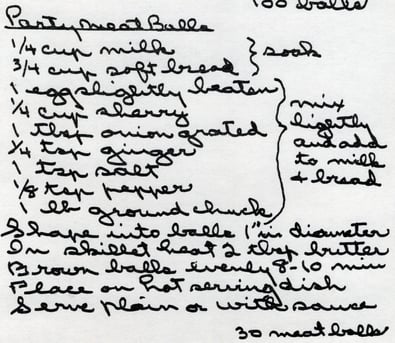 100 balls
Party Meat Balls
1/4 cup milk
3/4 cup soft bread
} soak
1 egg slightly beaten
1/4 cup sherry
1 tbsp onion grated
1/4 tsp ginger
1 tsp salt
1/8 tsp pepper
1 lb ground chuck
} mix
lightly
and add
to milk
+ bread
Shape into balls 1" in diameter
In skillet heat 2 tbsp butter
Brown balls evenly 8-10 min
Place on hot serving dish
Serve plain or with sauce
30 meat balls